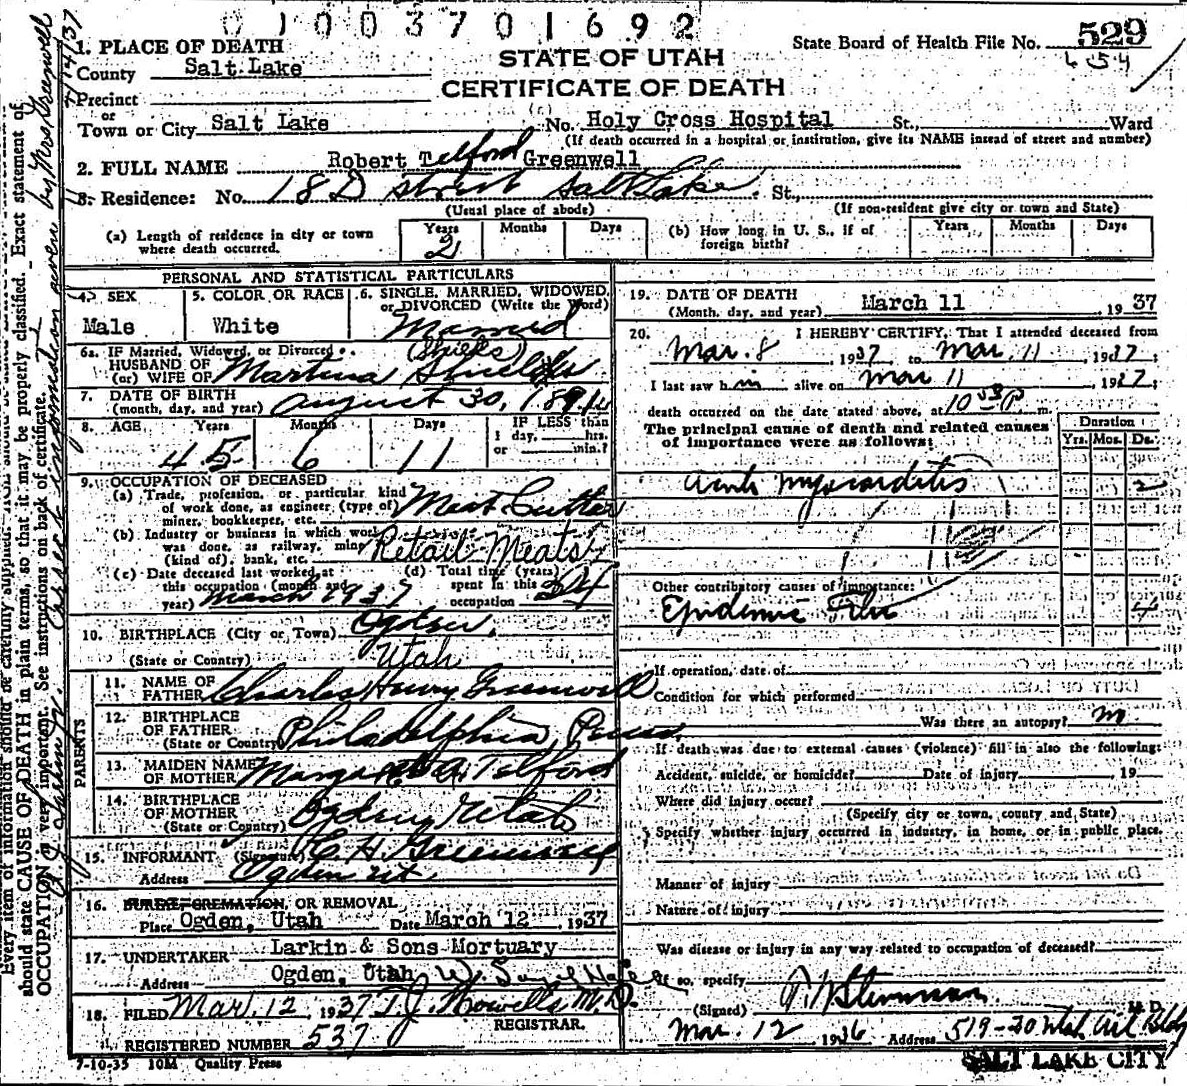 01003701692
State Board of Health File No. 529
STATE OF UTAH
CERTIFICATE OF DEATH
1. PLACE OF DEATH
County Salt Lake
Precinct
or
Town or City Salt Lake No. Holy Cross Hospital St., Ward
(If death occurred in a hospital or institution, give its NAME instead of street and number)
2. FULL NAME Robert Telford Greenwell
3. Residence: No. 18 D street Salt Lake St.
(Usual place of abode) (If non-resident give city or town and State)
(a) Length of residence in city or town where death occurred. Years 2 Months Days
(b) How long in U. S., if of foreign birth? Years Months Days
PERSONAL AND STATISTICAL PARTICULARS
4. SEX Male
5. COLOR OR RACE White
6. SINGLE, MARRIED, WIDOWED, or DIVORCED (Write the Word) Married
6a. IF Married, Widowed, or Divorced
HUSBAND OF
(or) WIFE OF Martina
7. DATE OF BIRTH
(month, day, and year) August 30, 1891
8. AGE Years 45 Months 6 Days 11 IF LESS than 1 day, hrs. or min.?
9. OCCUPATION OF DECEASED
(a) Trade, profession, or particular kind of work done, as engineer (type of) miner, bookkeeper, etc. Meat Cutter
(b) Industry or business in which work was done, as railway, mine (kind of), bank, etc. Retail Meats
(c) Date deceased last worked at this occupation (month and year) March 1937
(d) Total time (years) spent in this occupation 24
10. BIRTHPLACE (City or Town) Ogden,
(State or Country) Utah
PARENTS
11. NAME OF FATHER Charles Henry Greenwell
12. BIRTHPLACE OF FATHER
(State or Country) Philadelphia, Penn.
13. MAIDEN NAME OF MOTHER Margaret A. Telford
14. BIRTHPLACE OF MOTHER
(State or Country) Ogden, Utah
15. INFORMANT (Signature) C. H. Greenwell
Address Ogden Ut.
16. BURIAL, CREMATION, OR REMOVAL
Place Ogden, Utah Date March 12, 1937
17. UNDERTAKER Larkin & Sons Mortuary
Address Ogden, Utah
18. FILED Mar. 12, 1937 T. J. Howells M.D.
REGISTRAR.
REGISTERED NUMBER 537
7-10-35 10M Quality Press
19. DATE OF DEATH
(Month, day, and year) March 11 1937
20. I HEREBY CERTIFY, That I attended deceased from
Mar. 8 1937 to Mar. 11 1937;
I last saw him alive on Mar 11 1937;
death occurred on the date stated above, at 10 P m.
The principal cause of death and related causes of importance were as follows:
Duration
Yrs. Mos. Ds.
acute myocarditis 2
Other contributory causes of importance:
Epidemic Flu 4
If operation, date of
Condition for which performed
Was there an autopsy? no
If death was due to external causes (violence) fill in also the following:
Accident, suicide, or homicide? Date of injury 19
Where did injury occur?
(Specify city or town, county and State)
Specify whether injury occurred in industry, in home, or in public place.
Manner of injury
Nature of injury
Was disease or injury in any way related to occupation of deceased?
If so, specify
(Signed) M D
Mar. 12 1936 Address 519-20
SALT LAKE CITY